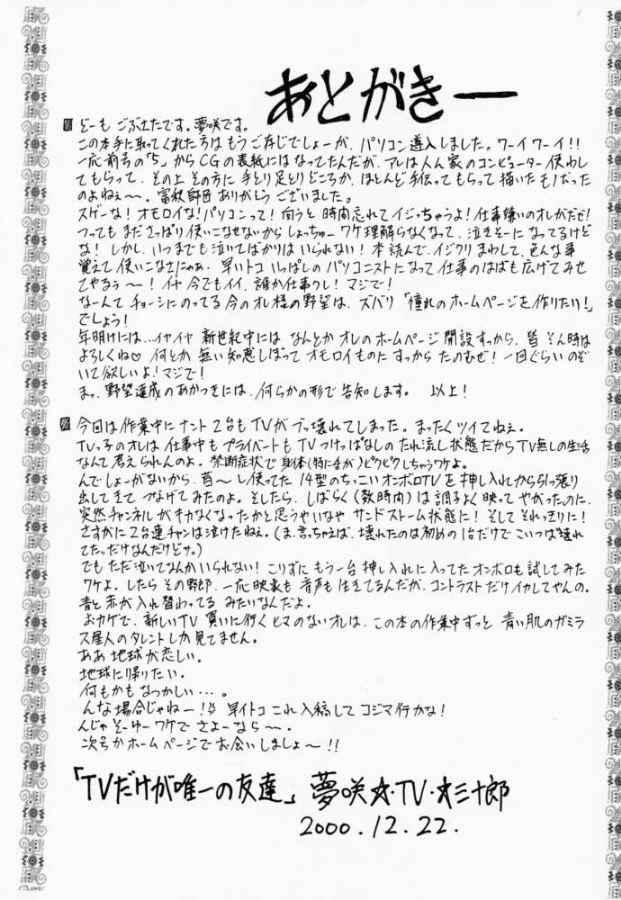 あとがきー
どーも ごぶさたです。夢咲です。
この本手に取ってくれた方は もうご存じでしょーが、パソコン導入しました。ワーイワーイ!!
一応前号の「5」からCGの表紙にはなってたんだが、アレは人ん家のコンピューター使わし
てもらって、その上その方に手とり足とりどころか、ほとんど手伝ってもらって描いたモノだった
のよねぇ〜。ありがとうございました。
スゲーな! オモロイな!パソコンって! 向うと時間忘れてイジっちゃうよ!仕事嫌いのオレがだぜ!
つってもまださっぱり使いこなせないから しょっちゅーワケ理解らなくなって、泣きそーになってるけど
な! しかし、いつまでも泣いてばかりはいられない! 本読んで、イジクリまわして、色んな事
覚えて使いこなさにゃあ。早いトコいっぱしのパソコニストになって仕事のはばも広げてみせ
てやるぅ〜! イヤ今でもイイ、誰か仕事クレ! マジで!
なーんてチョーシにのってる今のオレ様の野望は、ズバリ「憧れのホームページを作りたい!」
でしょう!
年明けには…イヤイヤ 新世紀中には なんとか オレのホームページ開設すっから、皆 そん時は
よろしくね♡ 何とか無い知恵しぼって オモロイものにすっから たのむぜ! 一回ぐらいのぞ
いて欲しいよ! マジで!
まっ、野望達成のあかつきには、何らかの形で告知します。 以上!
今回は作業中にナント2台もTVがブッ壊れてしまった。まったくツイてねぇ。
TVっ子のオレは仕事中もプライベートもTVつけっぱなしのたれ流し状態だからTV無しの生活
なんて考えられんのよ。禁断症状で身体(特に手が)ピクピクしちゃうワケよ。
んでしょーがないから、昔〜し使ってた14型のちっこいオンボロTVを押し入れから引っ張り
出してきてつなげてみたのよ。そしたら、しばらく(数時間)は調子よく映ってやがったのに、
突然チャンネルがキカなくなったかと思うやいなやサンドストーム状態に! そしてそれっきりに!
さすがに2台連チャンは泣けたねぇ。(ま、言っちゃえば、壊れたのは初めの1台だけでこいつは壊れ
てたっだけなんだけどサ。)
でもただ泣いてなんかいられない! こりずにもう一台押し入れに入ってたオンボロも試してみた
ワケよ。したらその野郎、一応映象も音声も生きてるんだが、コントラストだけイカレてやんの。
青と赤が入れ替わってる みたいなんだよ。
おカゲで、新しいTV買いに行くヒマのないオレは、この本の作業中ずっと 青い肌のガミラ
ス星人のタレントしか見てません。
ああ 地球が恋しい。
地球に帰りたい。
何もかもなつかしい…。
んな場合じゃねー! 早イトコ これ入稿してコジマ行かな!
んじゃそーゆーワケでさよーなら〜。
次号かホームページでお会いしましょ〜!!
「TVだけが唯一の友達」夢咲☆・TV・☆三十郎
2000.12.22.